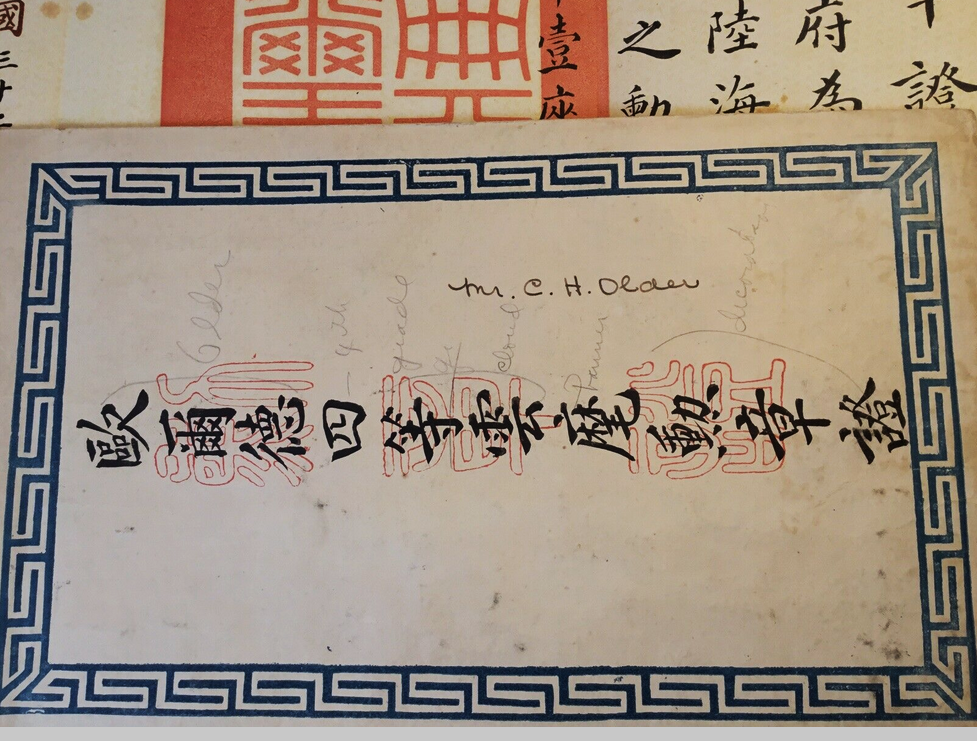 證
府為
陸海
之勳
壹座
國三十
Mr. C. H. Older
歐爾德四等雲麾勳章證
Older
4th
grade
cloud
Banner
decoration